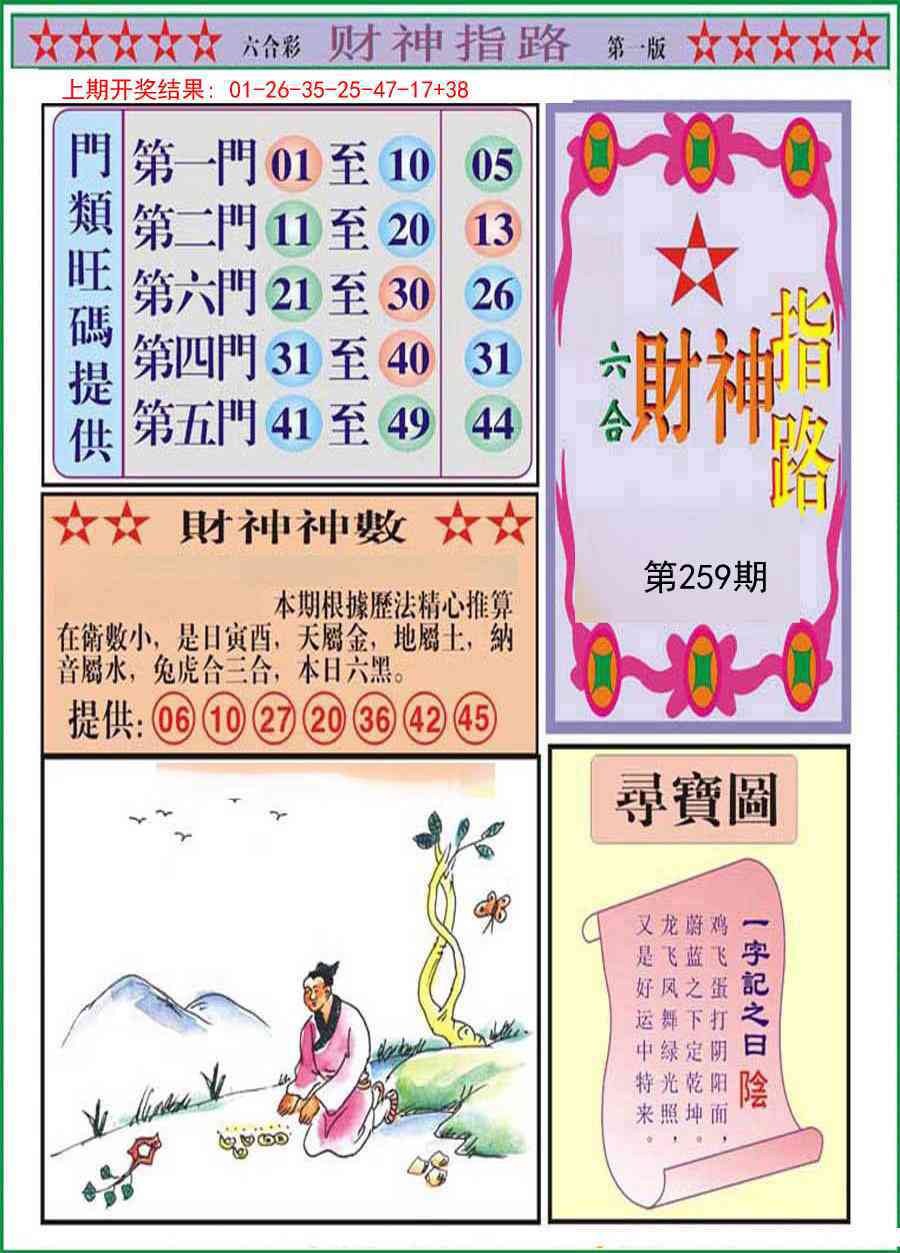 六合彩 财神指路 第一版
上期开奖结果：01-26-35-25-47-17+38
門類旺碼提供
第一門 01 至 10 05
第二門 11 至 20 13
第六門 21 至 30 26
第四門 31 至 40 31
第五門 41 至 49 44
六合 財神 指路
第259期
財神神數
本期根據歷法精心推算
在術數小，是日寅酉，天屬金，地屬土，納
音屬水，兔虎合三合，本日六黑。
提供: 06 10 27 20 36 42 45
尋寶圖
一字記之日 陰
鸡飞蛋打阴阳面，
蔚蓝之下定乾坤。
龙飞凤舞绿光照，
又是好运中特来。